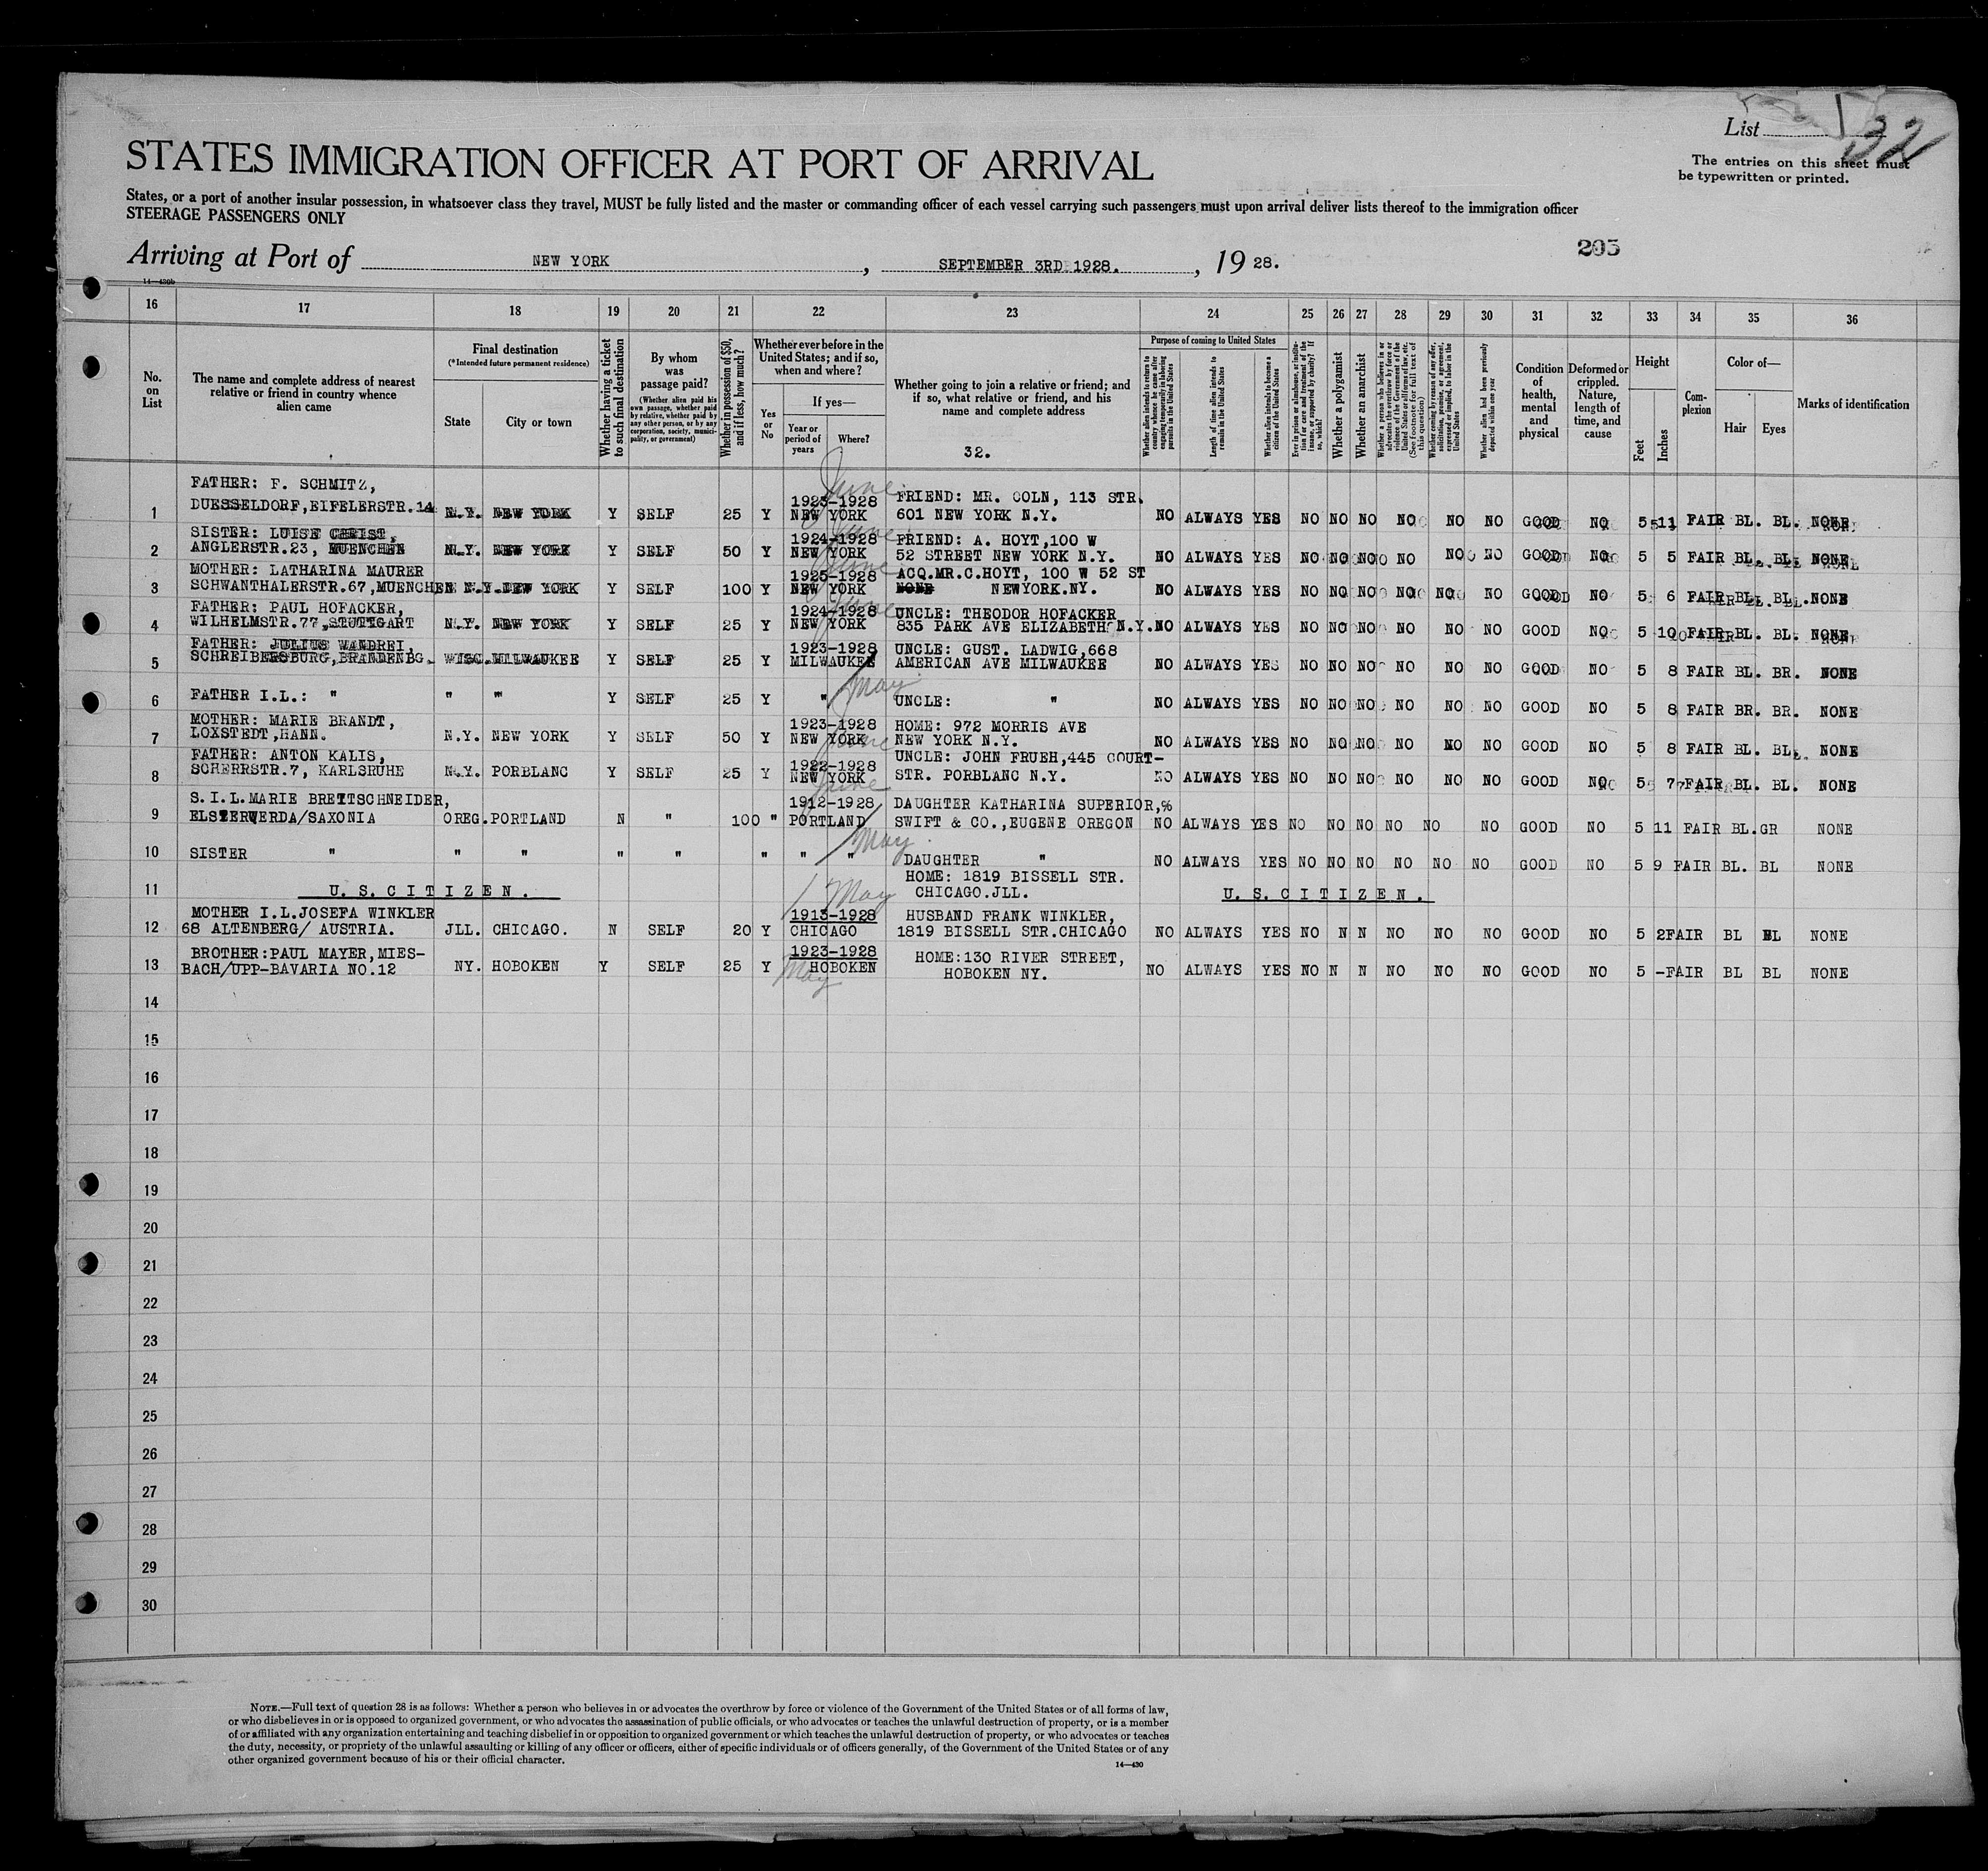 List 32
The entries on this sheet must
be typewritten or printed.
STATES IMMIGRATION OFFICER AT PORT OF ARRIVAL
States, or a port of another insular possession, in whatsoever class they travel, MUST be fully listed and the master or commanding officer of each vessel carrying such passengers must upon arrival deliver lists thereof to the immigration officer
STEERAGE PASSENGERS ONLY
205
Arriving at Port of NEW YORK, SEPTEMBER 3RD 1928., 19 28.
14—430b
16 17 18 19 20 21 22 23 24 25 26 27 28 29 30 31 32 33 34 35 36
No. on List
The name and complete address of nearest relative or friend in country whence alien came
Final destination
(*Intended future permanent residence)
State
City or town
Whether having a ticket to such final destination
By whom was passage paid?
(Whether alien paid his own passage, whether paid by relative, whether paid by any other person, or by any corporation, society, municipality, or government)
Whether in possession of $50, and if less, how much?
Whether ever before in the United States; and if so, when and where?
Yes or No
If yes—
Year or period of years
Where?
Whether going to join a relative or friend; and if so, what relative or friend, and his name and complete address
32.
Purpose of coming to United States
Whether alien intends to return to country whence he came after engaging temporarily in laboring pursuits in the United States
Length of time alien intends to remain in the United States
Whether alien intends to become a citizen of the United States
Ever in prison or almshouse, or institution for care and treatment of the insane, or supported by charity? If so, which?
Whether a polygamist
Whether an anarchist
Whether a person who believes in or advocates the overthrow by force or violence of the Government of the United States or all forms of law, etc. (See footnote for full text of this question)
Whether coming by reason of any offer, solicitation, promise, or agreement, expressed or implied, to labor in the United States
Whether alien had been previously deported within one year
Condition of health, mental and physical
Deformed or crippled. Nature, length of time, and cause
Height
Feet
Inches
Complexion
Color of—
Hair
Eyes
Marks of identification
FATHER: F. SCHMITZ, 1923-1928 June FRIEND: MR. COLN, 113 STR.
1 DUESSELDORF, EIFELERSTR.14 N.Y. NEW YORK Y SELF 25 Y NEW YORK 601 NEW YORK N.Y. NO ALWAYS YES NO NO NO NO NO NO GOOD NO 5 11 FAIR BL. BL. NONE
SISTER: LUISE CHRIST, 1924-1928 June FRIEND: A. HOYT,100 W
2 ANGLERSTR.23, MUENCHEN N.Y. NEW YORK Y SELF 50 Y NEW YORK 52 STREET NEW YORK N.Y. NO ALWAYS YES NO NO NO NO NO NO GOOD NO 5 5 FAIR BL. BL. NONE
MOTHER: LATHARINA MAURER 1925-1928 June ACQ.MR.C.HOYT, 100 W 52 ST
3 SCHWANTHALERSTR.67,MUENCHEN N.Y.NEW YORK Y SELF 100 Y NEW YORK NONE NEWYORK.NY. NO ALWAYS YES NO NO NO NO NO NO GOOD NO 5 6 FAIR BL. BL. NONE
FATHER: PAUL HOFACKER, 1924-1928 June UNCLE: THEODOR HOFACKER
4 WILHELMSTR.77,STUTTGART N.Y. NEW YORK Y SELF 25 Y NEW YORK 835 PARK AVE ELIZABETH N.Y. NO ALWAYS YES NO NO NO NO NO NO GOOD NO 5 10 FAIR BL. BL. NONE
FATHER: JULIUS WANDREI, 1923-1928 UNCLE: GUST. LADWIG,668
5 SCHREIBERSBURG,BRANDENBG. WISC.MILWAUKEE Y SELF 25 Y MILWAUKEE AMERICAN AVE MILWAUKEE NO ALWAYS YES NO NO NO NO NO NO GOOD NO 5 8 FAIR BL. BR. NONE
6 FATHER I.L.: " " " Y SELF 25 Y " May UNCLE: " NO ALWAYS YES NO NO NO NO NO NO GOOD NO 5 8 FAIR BR. BR. NONE
MOTHER: MARIE BRANDT, 1923-1928 HOME: 972 MORRIS AVE
7 LOXSTEDT,HANN. N.Y. NEW YORK Y SELF 50 Y NEW YORK June NEW YORK N.Y. NO ALWAYS YES NO NO NO NO NO NO GOOD NO 5 8 FAIR BL. BL. NONE
FATHER: ANTON KALIS, 1922-1928 UNCLE: JOHN FRUEH,445 COURT-
8 SCHERRSTR.7, KARLSRUHE N.Y. PORBLANC Y SELF 25 Y NEW YORK June STR. PORBLANC N.Y. NO ALWAYS YES NO NO NO NO NO NO GOOD NO 5 7 FAIR BL. BL. NONE
S.I.L.MARIE BRETTSCHNEIDER, 1912-1928 DAUGHTER KATHARINA SUPERIOR,%
9 ELSTERWERDA/SAXONIA OREG.PORTLAND N " 100 " PORTLAND SWIFT & CO.,EUGENE OREGON NO ALWAYS YES NO NO NO NO NO NO GOOD NO 5 11 FAIR BL.GR NONE
10 SISTER " " " " " " " " May DAUGHTER " NO ALWAYS YES NO NO NO NO NO NO GOOD NO 5 9 FAIR BL. BL NONE
HOME: 1819 BISSELL STR.
11 U. S. C I T I Z E N . May CHICAGO.JLL. U. S. C I T I Z E N .
MOTHER I.L.JOSEFA WINKLER 1913-1928 HUSBAND FRANK WINKLER,
12 68 ALTENBERG/ AUSTRIA. JLL. CHICAGO. N SELF 20 Y CHICAGO 1819 BISSELL STR.CHICAGO NO ALWAYS YES NO N N NO NO NO GOOD NO 5 2FAIR BL BL NONE
BROTHER:PAUL MAYER,MIES- 1923-1928 HOME:130 RIVER STREET,
13 BACH/UPP-BAVARIA NO.12 NY. HOBOKEN Y SELF 25 Y May HOBOKEN HOBOKEN NY. NO ALWAYS YES NO N N NO NO NO GOOD NO 5 -FAIR BL BL NONE
14
15
16
17
18
19
20
21
22
23
24
25
26
27
28
29
30
NOTE.—Full text of question 28 is as follows: Whether a person who believes in or advocates the overthrow by force or violence of the Government of the United States or of all forms of law,
or who disbelieves in or is opposed to organized government, or who advocates the assassination of public officials, or who advocates or teaches the unlawful destruction of property, or is a member
of or affiliated with any organization entertaining and teaching disbelief in or opposition to organized government or which teaches the unlawful destruction of property, or who advocates or teaches
the duty, necessity, or propriety of the unlawful assaulting or killing of any officer or officers, either of specific individuals or of officers generally, of the Government of the United States or of any
other organized government because of his or their official character.
14—430